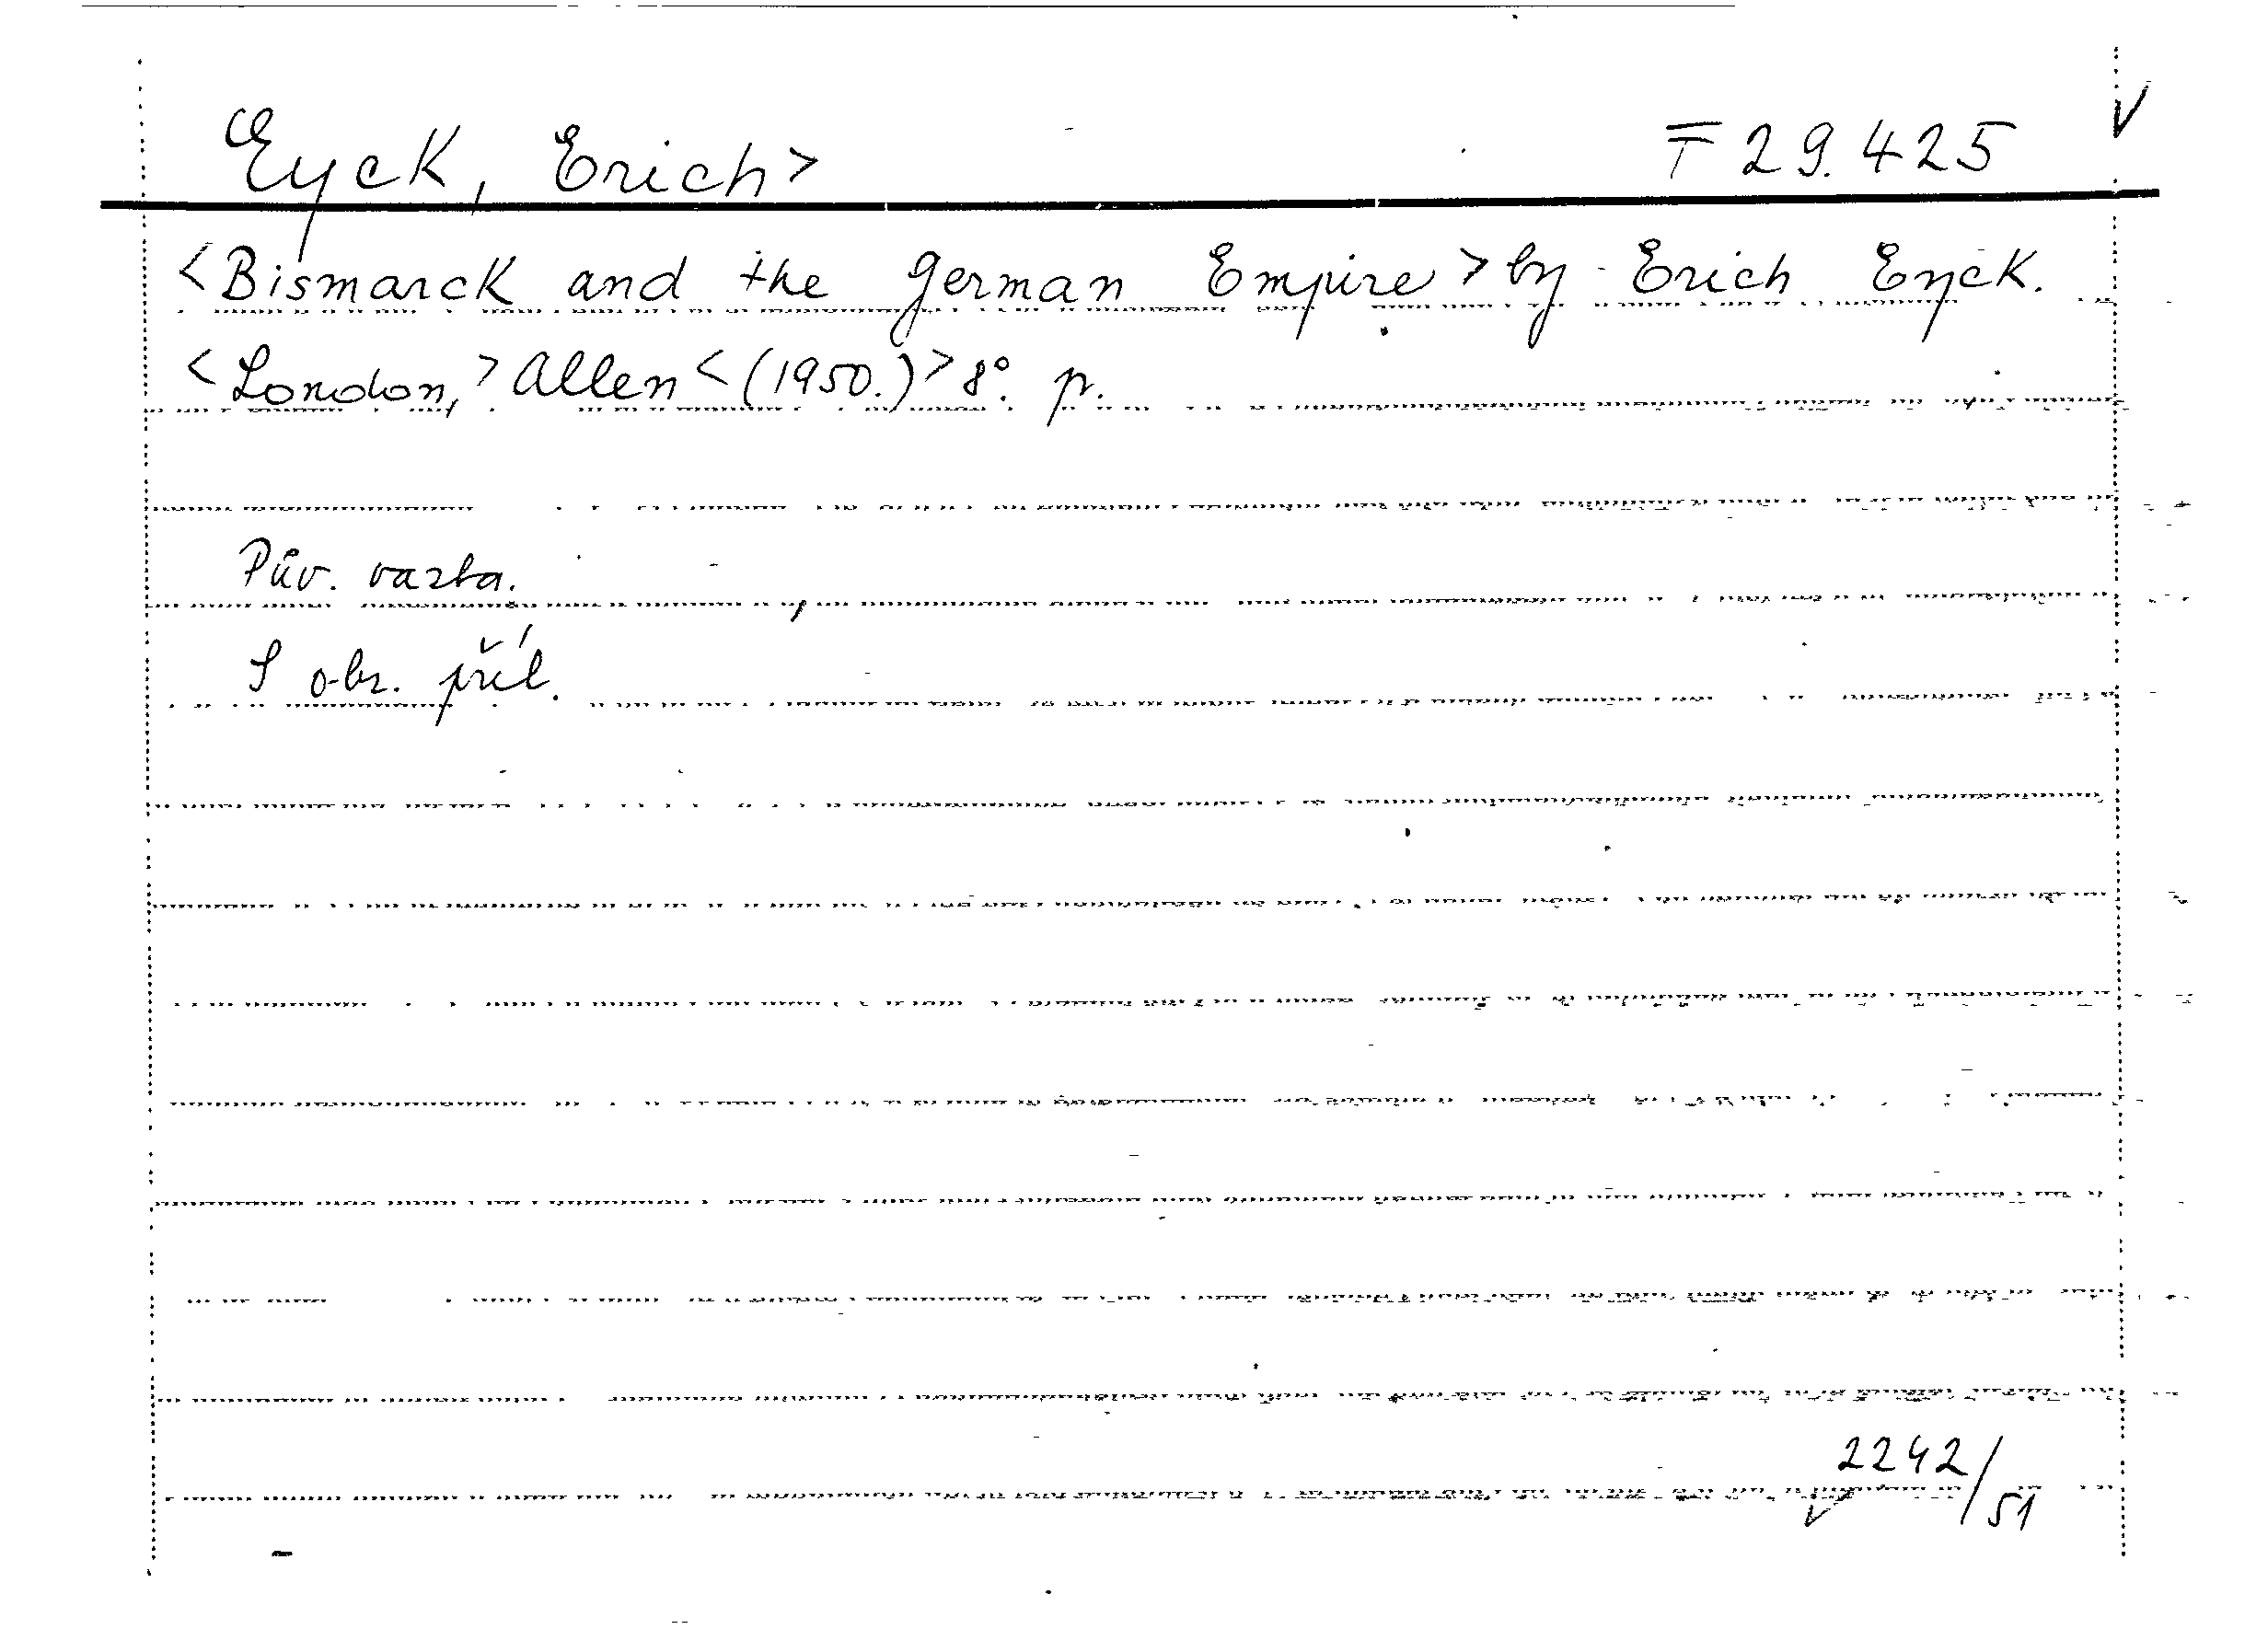 Eyck, Erich> F 29.425 V
<Bismarck and the German Empire> by Erich Eyck.
<London,> Allen <(1950.)> 8°. p.
Pův. vazba.
S obr. příl.
2242/51